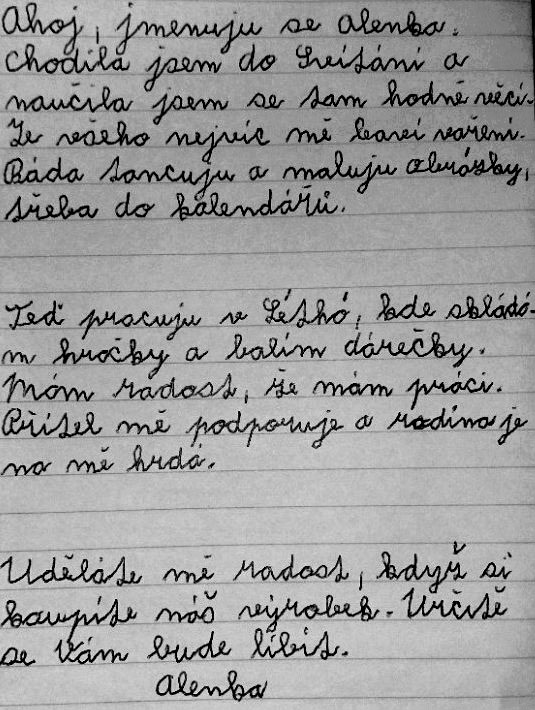 Ahoj, jmenuju se Alenka.
Chodila jsem do Svítání a
naučila jsem se tam hodně věcí.
Ze všeho nejvíc mě baví vaření.
Ráda tancuju a maluju obrázky,
třeba do kalendářů.
Teď pracuju v Léthó, kde skládá-
m hračky a balím dárečky.
Mám radost, že mám práci.
Přítel mě podporuje a rodina je
na mě hrdá.
Uděláte mě radost, když si
koupíte náš výrobek. Určitě
se Vám bude líbit.
Alenka